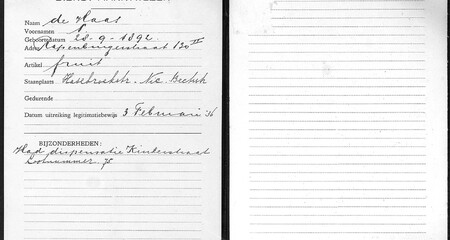 DIENST MARKTWEZEN
Naam de Haas
Voornamen N.
Geboortedatum 28-9-1892.
Adres Rapenburgerstraat 130 II
Artikel fruit
Staanplaats Hasebroekstr. Nic. Beetsstr.
Gedurende
Datum uitreiking legitimatiebewijs 3 Februari '36
BIJZONDERHEDEN:
Had dispensatie Kinkerstraat
Lootnummer 75